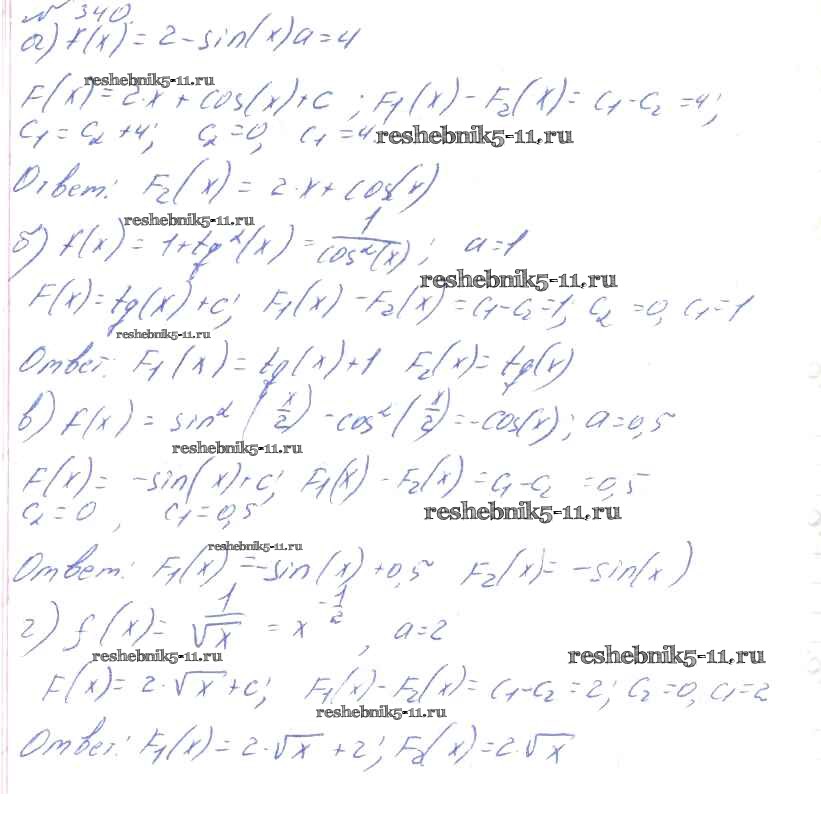 № 340.
а) f(x) = 2 - sin(x) a = 4
reshebnik5-11.ru
F(x) = 2·x + cos(x) + c ; F₁(x) - F₂(x) = c₁ - c₂ = 4;
c₁ = c₂ + 4; c₂ = 0, c₁ = 4.
reshebnik5-11.ru
Ответ: F₂(x) = 2·x + cos(x)
reshebnik5-11.ru
б) f(x) = 1 + tg²(x) = 1/cos²(x) ; a = 1
reshebnik5-11.ru
F(x) = tg(x) + c; F₁(x) - F₂(x) = c₁ - c₂ = 1; c₂ = 0, c₁ = 1
reshebnik5-11.ru
Ответ: F₁(x) = tg(x) + 1 F₂(x) = tg(x)
в) f(x) = sin²(x/2) - cos²(x/2) = -cos(x); a = 0,5
reshebnik5-11.ru
F(x) = -sin(x) + c; F₁(x) - F₂(x) = c₁ - c₂ = 0,5
c₂ = 0 , c₁ = 0,5
reshebnik5-11.ru
reshebnik5-11.ru
Ответ: F₁(x) = -sin(x) + 0,5 F₂(x) = -sin(x)
г) f(x) = 1/√x = x^(-1/2) , a = 2
reshebnik5-11.ru
reshebnik5-11.ru
F(x) = 2·√x + c; F₁(x) - F₂(x) = c₁ - c₂ = 2; c₂ = 0, c₁ = 2
reshebnik5-11.ru
Ответ: F₁(x) = 2·√x + 2; F₂(x) = 2·√x